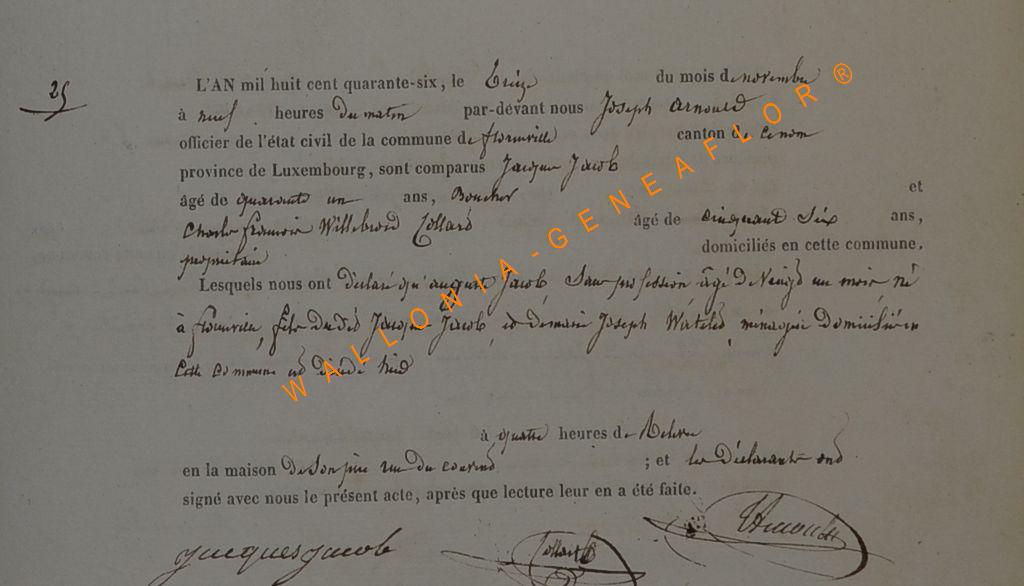 25
L'AN mil huit cent quarante-six, le treize du mois de novembre
à neuf heures du matin par-devant nous Joseph Arnould
officier de l'état civil de la commune de florenville canton de ce nom
province de Luxembourg, sont comparus Jacques Jacob
âgé de quarante un ans, Boucher et
Charle françois Willebrord Collard âgé de cinquant six ans,
propriétaire domiciliés en cette commune,
Lesquels nous ont déclaré qu'august Jacob Sans profession âgé de un mois né
à florenville, fils dudit Jacques Jacob, et de marie Joseph ménagère domiciliés en
cette commune est décédé
à quatre heures de
en la maison de son père rue du ; et les déclarants ont
signé avec nous le présent acte, après que lecture leur en a été faite.
Jacques Jacob Collard Arnould
WALLONIA-GENEAFLOR®